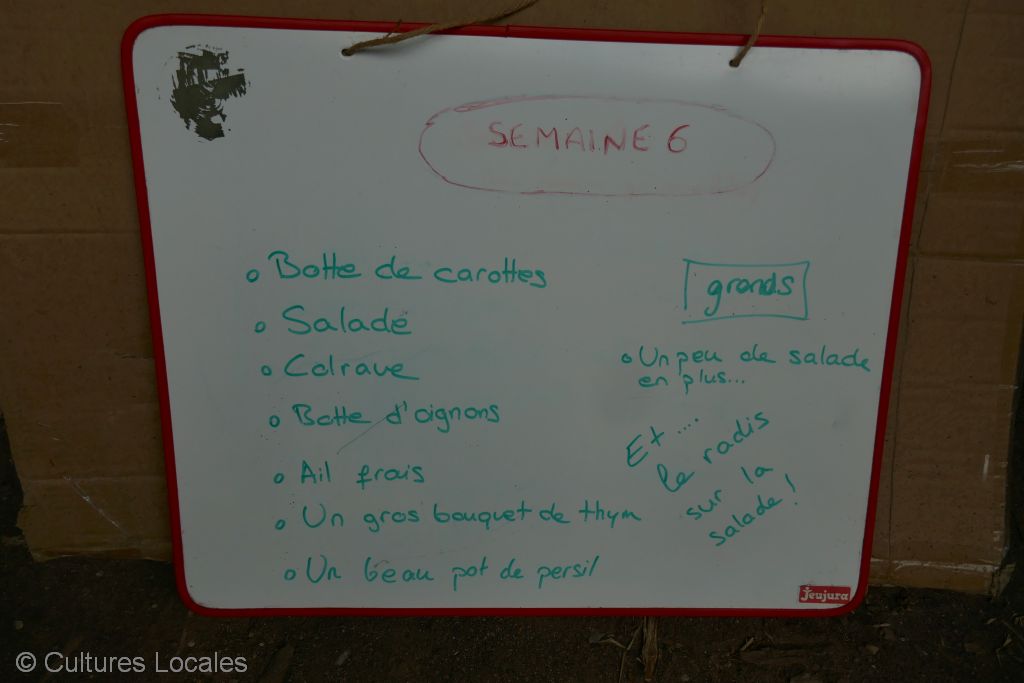 SEMAINE 6
Botte de carottes
Salade
Colrave
Botte d'oignons
Ail frais
Un gros bouquet de thym
Un beau pot de persil
grands
Un peu de salade
en plus...
Et ....
le radis
sur la
salade !
Jeujura
© Cultures Locales